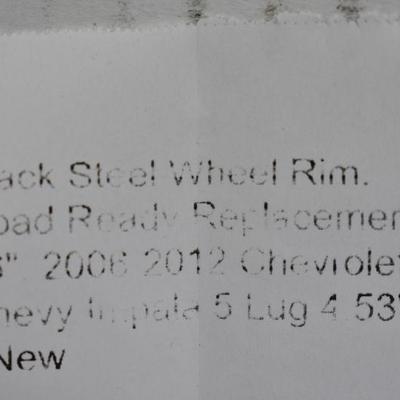 ack Steel Wheel Rim.
oad Ready Replacemen
6" 2006 2012 Chevrolet
hevy Impala 5 Lug 4.53"
New